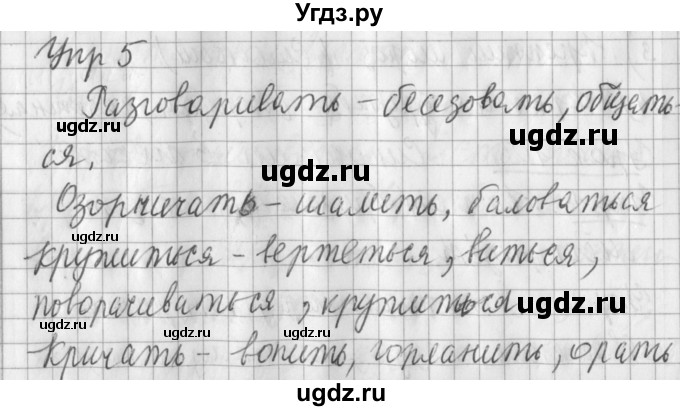 Угдз.ру
Упр 5
Разговаривать – беседовать, общать-
ся.
Озорничать – шалить, баловаться
кружиться – вертеться, виться,
поворачиваться, кружиться
кричать – вопить, горланить, орать
ugdz.ru
ugdz.ru
ugdz.ru
ugdz.ru
ugdz.ru
ugdz.ru
ugdz.ru
ugdz.ru
ugdz.ru
ugdz.ru